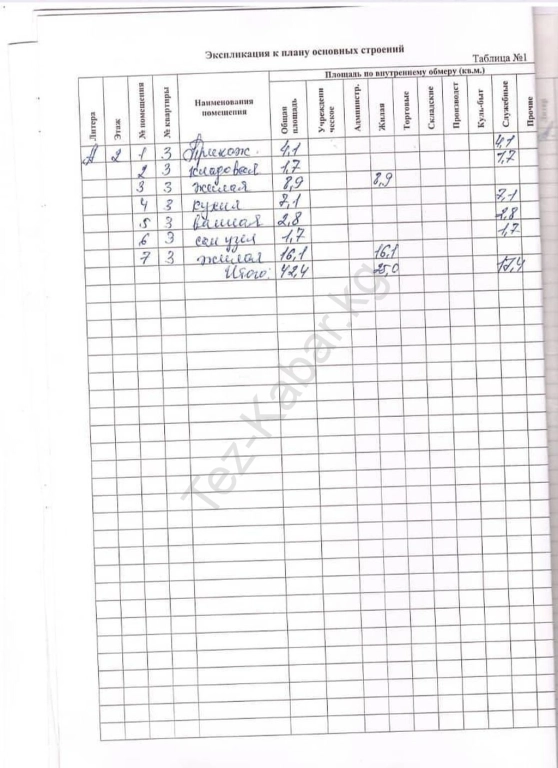 Экспликация к плану основных строений
Таблица №1
Литера Этаж № помещения № квартиры Наименования помещения Площадь по внутреннему обмеру (кв.м.)
Общая площадь Учрежденческое Администр. Жилая Торговые Складские Производст Куль-быт Служебные Прочие
А 2 1 3 Прихож. 4,1 4,1
2 3 кладовая 1,7 1,7
3 3 жилая 8,9 8,9
4 3 кухня 7,1 7,1
5 3 ванная 2,8 2,8
6 3 сан узел 1,7 1,7
7 3 жилая 16,1 16,1
Итого: 42,4 25,0 17,4
Tez-Kabar.kg